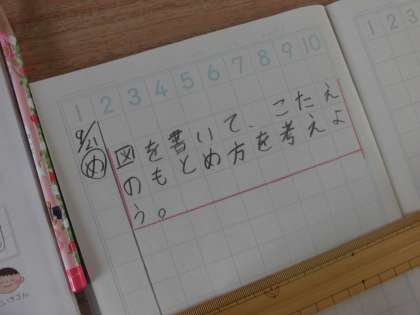 1 2 3 4 5 6 7 8 9 10
9/21
め 図を書いて、こたえ
のもとめ方を考えよ
う。
1 2 3